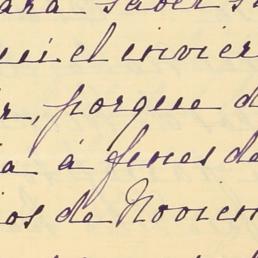 ara saber s
uí el invier
r, porque d
ia á fines de
ios de Noviem